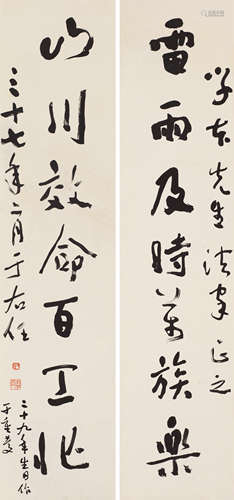 学本先生法家正之
雷雨及時萬族樂
山川效命百工作
三十七年二月于右任
二十九年生日作
于重慶